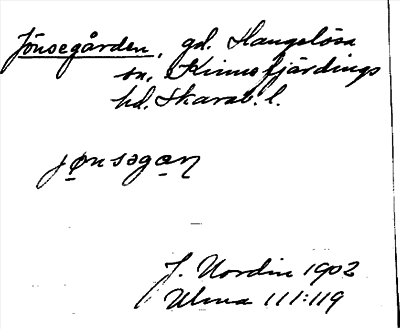 Jönsegården, gd. Hangelösa
sn, Kinnefjärdings
hd. Skarab. l.
jønsəgαn
J. Nordin 1902
Ulma 111:119